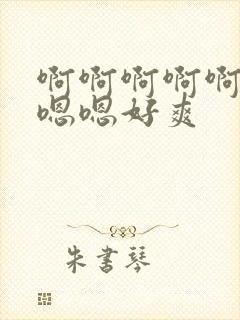 啊啊啊啊啊
嗯嗯好爽
朱書琴